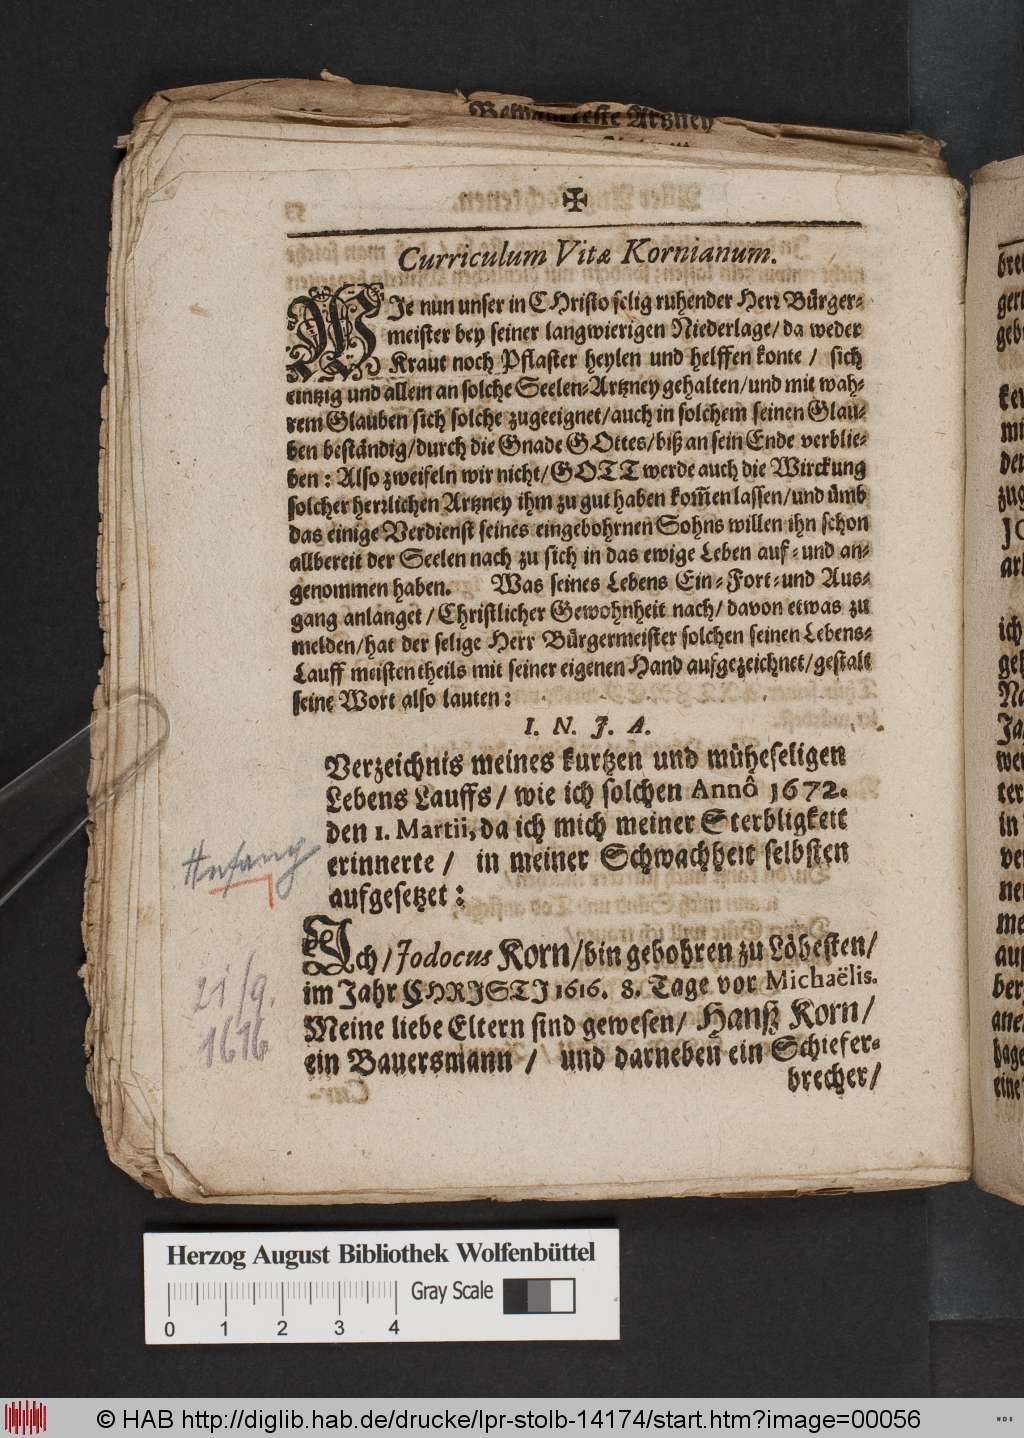 Bewährteste Artzney
✠
Curriculum Vitæ Kornianum.
WIe nun unser in CHristo selig ruhender Herr Bürger-
meister bey seiner langwierigen Niederlage/ da weder
Kraut noch Pflaster heylen und helffen konte / sich
eintzig und allein an solche Seelen-Artzney gehalten/und mit wah-
rem Glauben sich solche zugeeignet/auch in solchem seinen Glau-
ben beständig/durch die Gnade GOttes/biß an sein Ende verblie-
ben: Also zweifeln wir nicht/GOTT werde auch die Wirckung
solcher herzlichen Artzney ihm zu gut haben kom̃en lassen/und ümb
das einige Verdienst seines eingebohrnen Sohns willen ihn schon
allbereit der Seelen nach zu sich in das ewige Leben auf- und an-
genommen haben. Was seines Lebens Ein- Fort- und Aus-
gang anlanget / Christlicher Gewohnheit nach/ davon etwas zu
melden/hat der selige Herr Bürgermeister solchen seinen Lebens-
Lauff meistentheils mit seiner eigenen Hand aufgezeichnet/gestalt
seine Wort also lauten:
I. N. J. A.
Verzeichnis meines kurtzen und müheseligen
Lebens Lauffs / wie ich solchen Annô 1672.
den 1. Martii, da ich mich meiner Sterbligkeit
erinnerte / in meiner Schwachheit selbsten
aufgesetzet:
Anfang
Ich/ Jodocus Korn/bin gebohren zu Löbesten/
im Jahr CHRISTI 1616. 8. Tage vor Michaëlis.
Meine liebe Eltern sind gewesen/ Hanß Korn/
ein Bauersmann / und darneben ein Schiefer-
brecher/
21/9.
1616
Herzog August Bibliothek Wolfenbüttel
Gray Scale
0 1 2 3 4
© HAB http://diglib.hab.de/drucke/lpr-stolb-14174/start.htm?image=00056